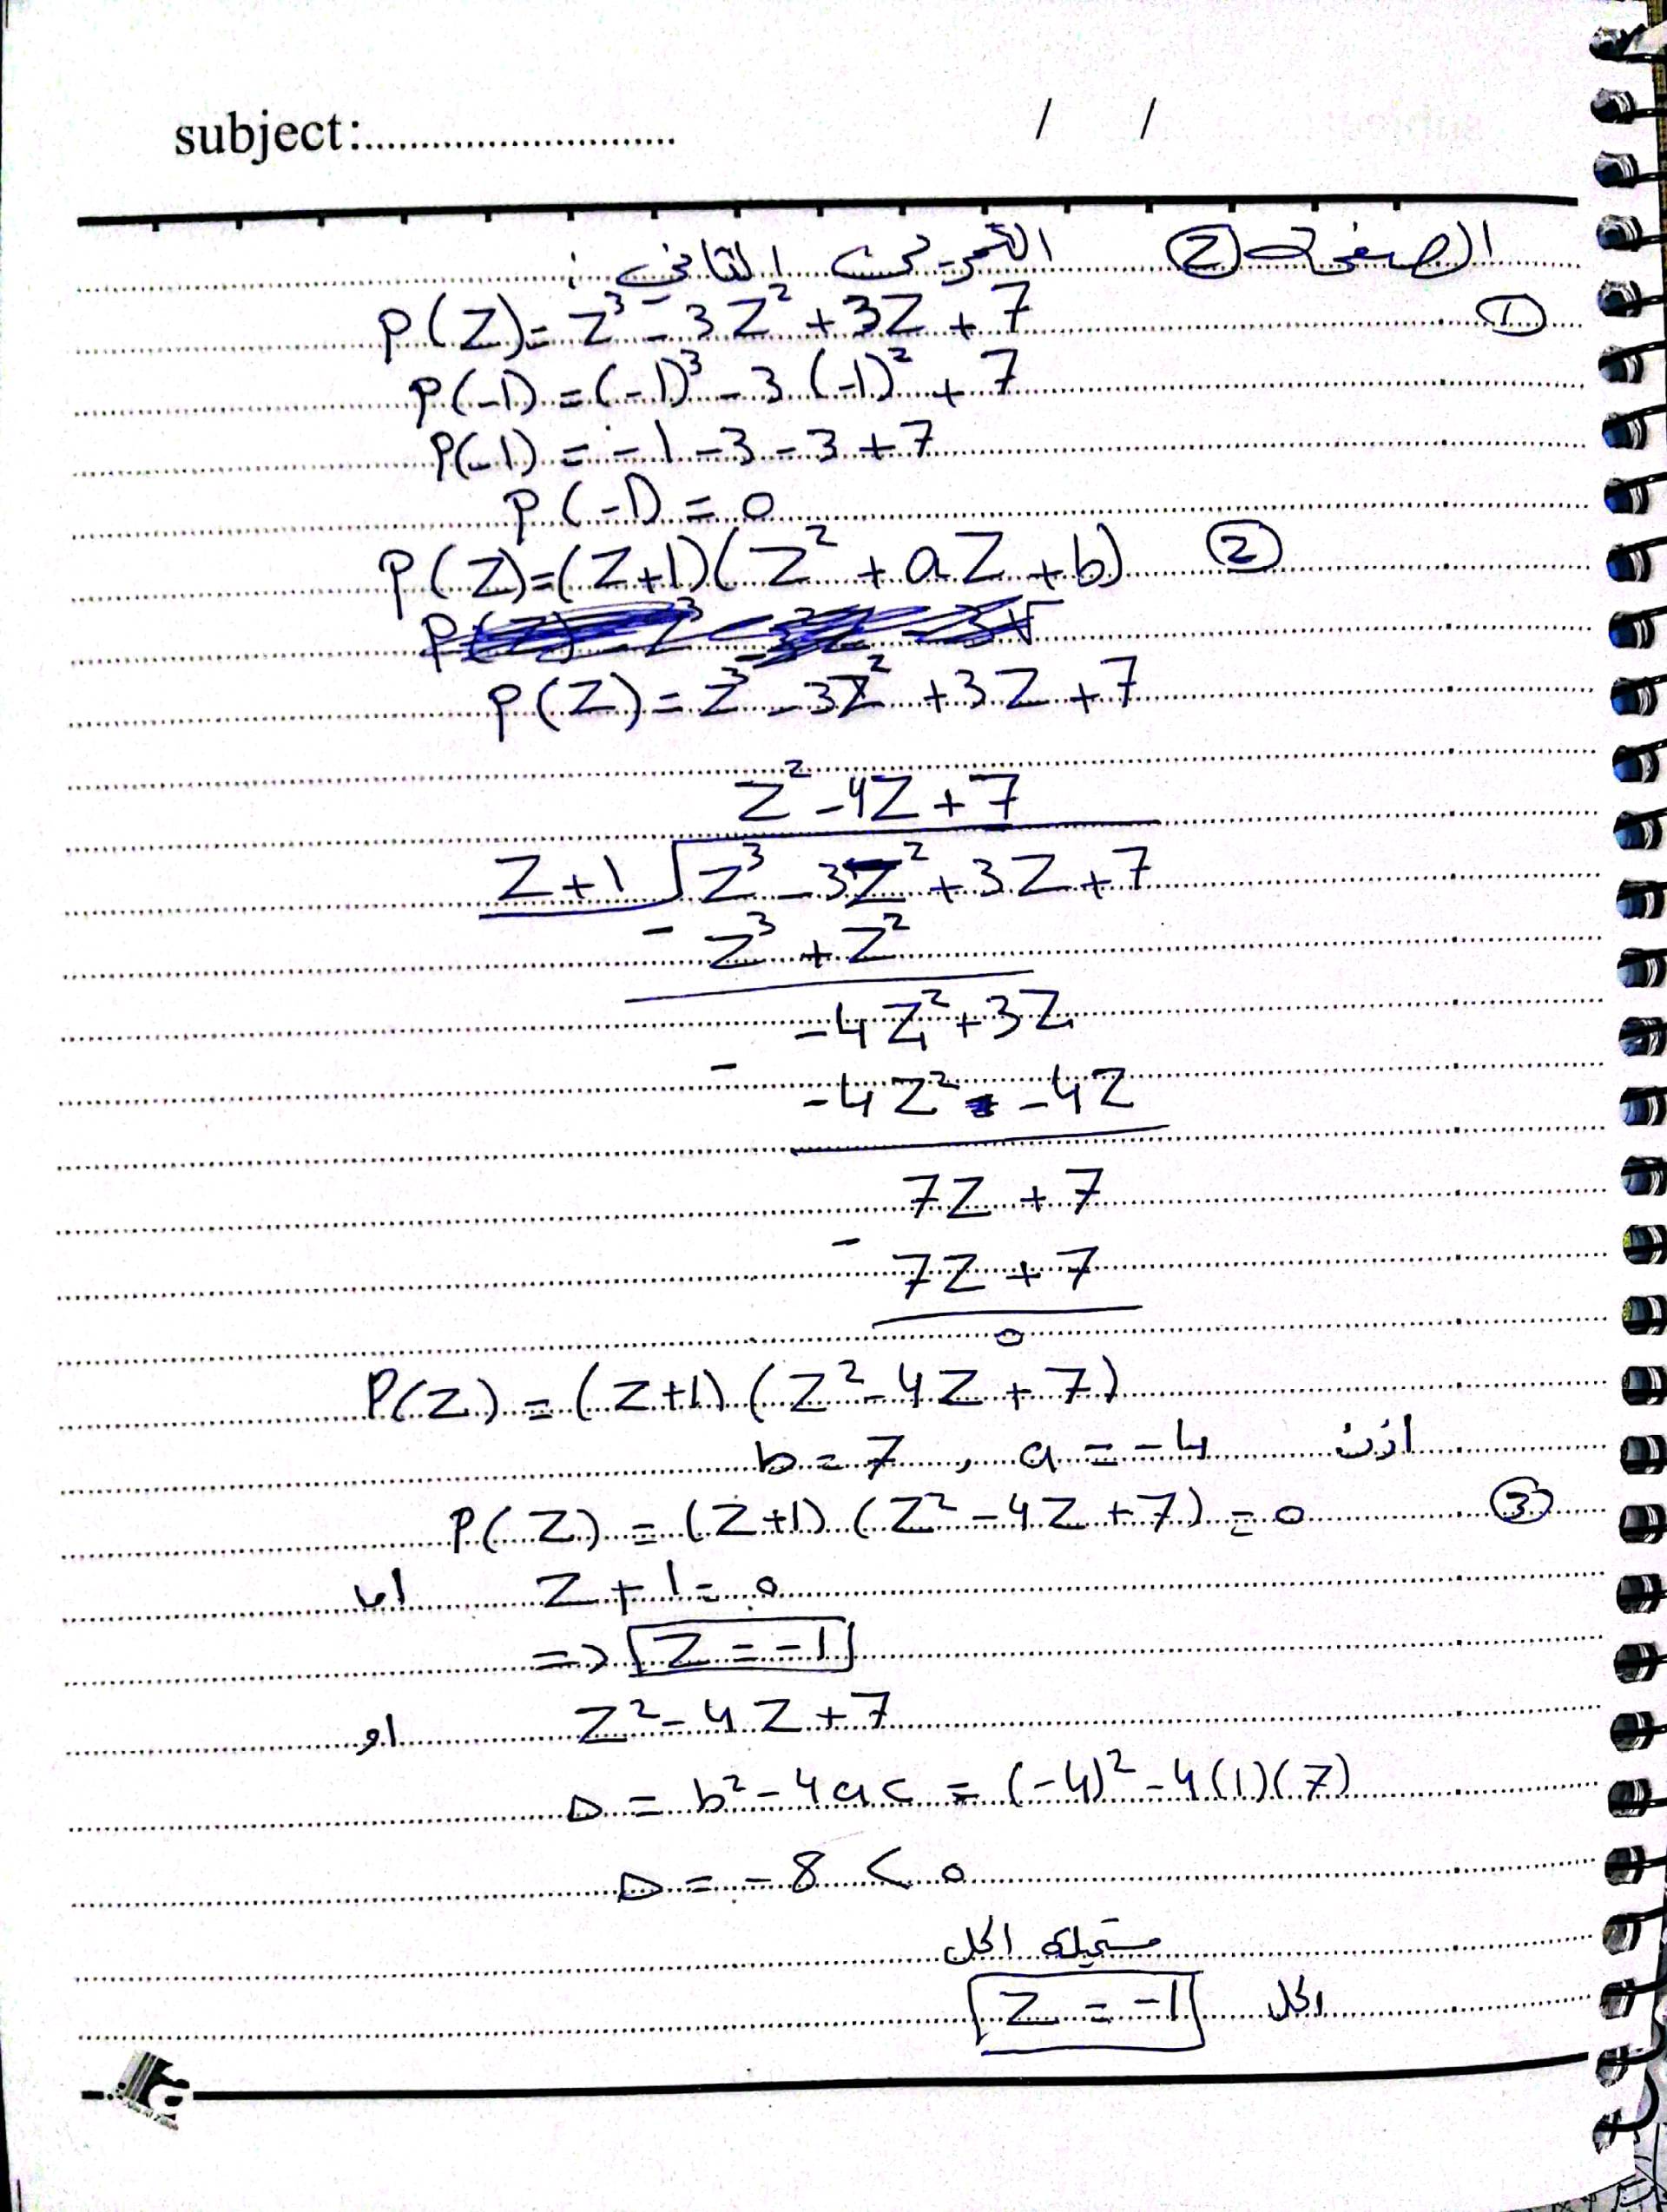 subject:............................ / /
الصفحة ② التمرين الثاني :
① P(Z) = Z³ - 3Z² + 3Z + 7
P(-1) = (-1)³ - 3(-1)² + 7
P(-1) = -1 - 3 - 3 + 7
P(-1) = 0
② P(Z) = (Z+1)(Z² + aZ + b)
P(Z) = Z³ - 3Z² + 3Z + 7
Z² - 4Z + 7
Z+1 Z³ - 3Z² + 3Z + 7
- Z³ + Z²
-4Z² + 3Z
- -4Z² -4Z
7Z + 7
- 7Z + 7
0
P(Z) = (Z+1)(Z² - 4Z + 7)
اذن a = -4 , b = 7
③ P(Z) = (Z+1)(Z² - 4Z + 7) = 0
اما Z + 1 = 0
=> Z = -1
او Z² - 4Z + 7
Δ = b² - 4ac = (-4)² - 4(1)(7)
Δ = -8 < 0
مستحيلة الحل
الحل Z = -1